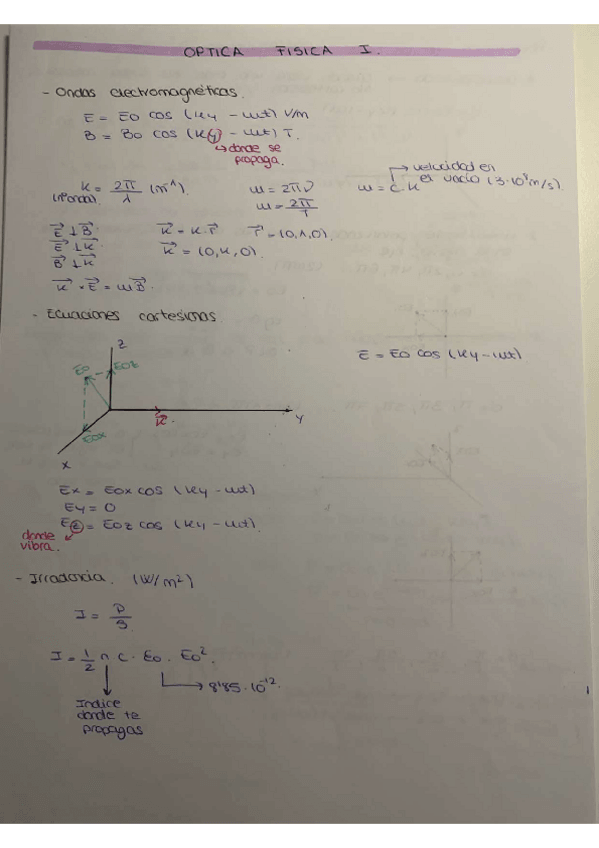 OPTICA FISICA I.
- Ondas electromagnéticas.
E = E0 cos (ky - ωt) V/m
B = B0 cos (ky - ωt) T.
↳ donde se propaga.
k = 2π/λ (m⁻¹)
(nºonda).
ω = 2πν
ω = 2π/T
ω = c.k
→ velocidad en el vacío (3·10⁸ m/s).
E⃗ ⊥ B⃗
E⃗ ⊥ k⃗
B⃗ ⊥ k⃗
k⃗ = k·r⃗
r⃗ = (0,1,0).
k⃗ = (0,k,0).
k⃗ × E⃗ = ωB⃗.
- Ecuaciones cartesianas.
E = E0 cos (ky - ωt)
Z
E0
E0z
E0x
k⃗.
Y
X
Ex = E0x cos (ky - ωt)
Ey = 0
Ez = E0z cos (ky - ωt).
donde vibra.
- Irradancia. (W/m²)
I = P/S
I = 1/2 n c · ε0 · E0².
→ 8'85·10⁻¹².
Indice
donde te
propagas